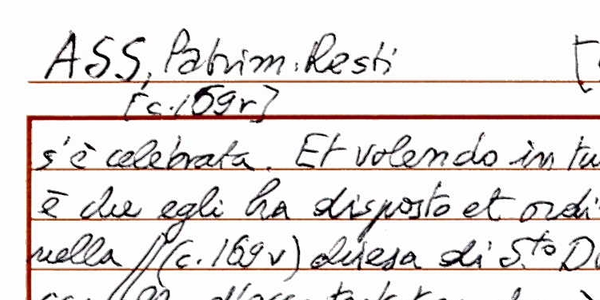 ASS, Patrim. Resti [
[c. 169r]
s'è celebrata. Et volendo in tu
è che egli ha disposto et ordi
nella // (c. 169v) chiesa di S.to D